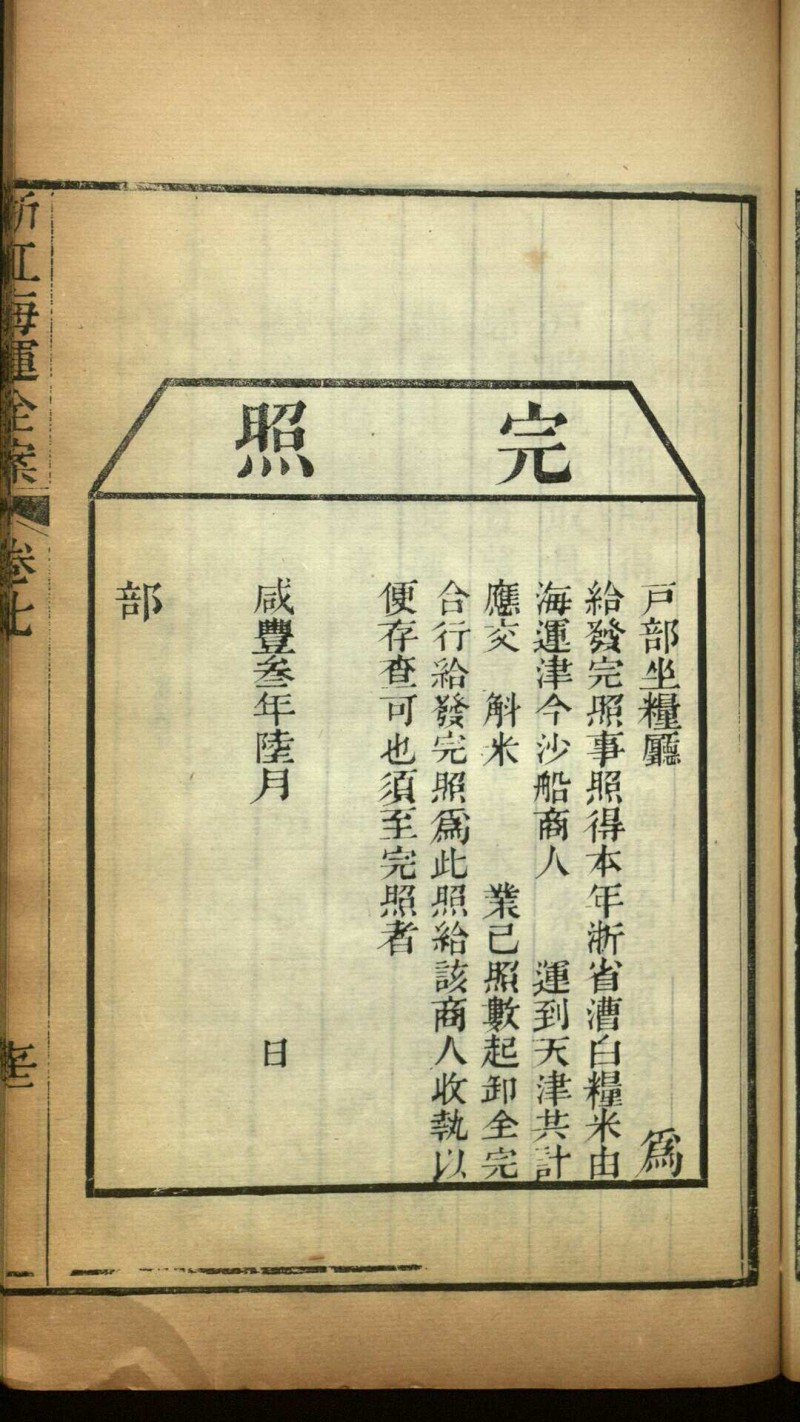 完照
戸部坐糧廳　爲
給發完照事照得本年浙省漕白糧米由
海運津今沙船商人　運到天津共計
應交　斛米　業已照數起卸全完
合行給發完照爲此照給該商人收執以
便存查可也須至完照者
咸豐叁年陸月　日
部
浙江海運全案　卷七